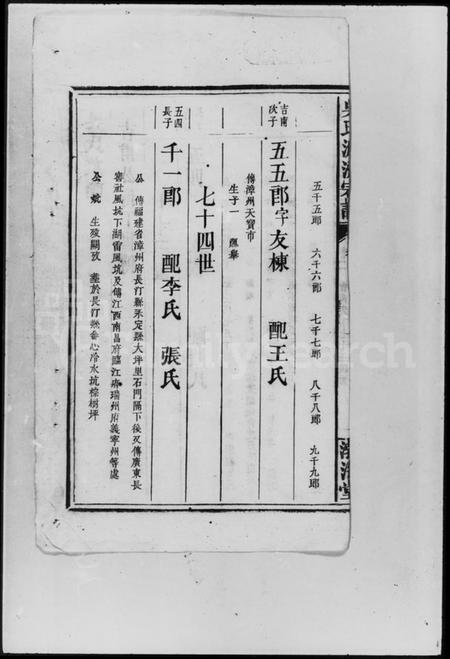 吳氏源流宗譜
渤海堂
五千五郎 六千六郎 七千七郎 八千八郎 九千九郎
吉南次子
五五郎字友棟 配王氏
傳漳州天寶市
生子一
七十四世
五四長子
千一郎 配李氏 張氏
公 傳福建省漳州府長汀縣永定縣大坪里石門隔下後又傳廣東長
窖社風坑下湖雷風坑及傳江西南昌府臨江府瑞州府義寧州等處
公妣 生歿闕攷 塟於長汀縣 心冷水坑棕樹坪